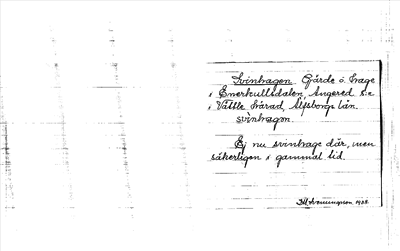 Svinhagen Gärde o. hage
i Emerkullsdalen, Angered s:n
i Vättle härad, Älfsborgs län.
svinhagen.
Ej nu svinhage där, men
säkerligen i gammal tid.
1928